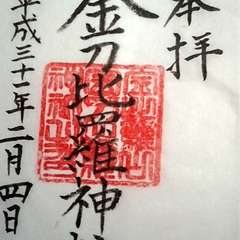 奉拝
金刀比羅神社
平成三十一年二月四日